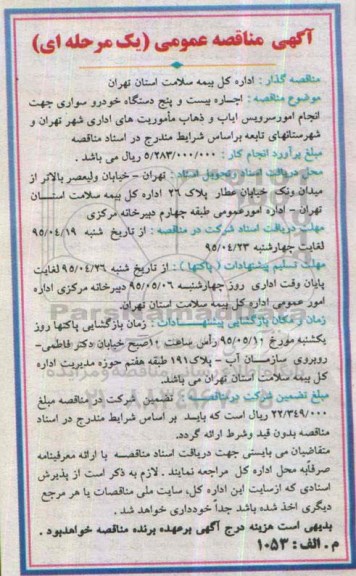 آگهی مناقصه عمومی (یک مرحله ای)
مناقصه گذار : اداره کل بیمه سلامت استان تهران
موضوع مناقصه : اجاره بیست و پنج دستگاه خودرو سواری جهت
انجام امورسرویس ایاب و ذهاب مأموریت های اداری شهر تهران و
شهرستانهای تابعه براساس شرایط مندرج در اسناد مناقصه
مبلغ برآورد انجام کار : ۵/۲۸۳/۰۰۰/۰۰۰ ریال می باشد .
محل دریافت اسناد وتحویل اسناد: تهران - خیابان ولیعصر بالاتر از
میدان ونک خیابان عطار پلاک ۲۶ اداره کل بیمه سلامت استان
تهران - اداره امورعمومی طبقه چهارم دبیرخانه مرکزی
مهلت دریافت اسناد شرکت در مناقصه : از تاریخ شنبه ۹۵/۰۴/۱۹
لغایت چهارشنبه ۹۵/۰۴/۲۳
مهلت تسلیم پیشنهادات (پاکتها) : از تاریخ شنبه ۹۵/۰۴/۲۶ لغایت
پایان وقت اداری روز چهارشنبه ۹۵/۰۵/۰۶ دبیرخانه مرکزی اداره
امور عمومی اداره کل بیمه سلامت استان تهران.
زمان و مکان بازگشایی پیشنهادات : زمان بازگشایی پاکتها روز
یکشنبه مورخ ۹۵/۰۵/۱۰ رأس ساعت ۱۰صبح خیابان دکتر فاطمی-
روبروی سازمان آب - پلاک۱۹۱ طبقه هفتم حوزه مدیریت اداره
کل بیمه سلامت استان تهران می باشد.
مبلغ تضمین شرکت درمناقصه : تضمین شرکت در مناقصه مبلغ
۲۲/۳۴۹/۰۰۰ ریال است که باید بر اساس شرایط مندرج در اسناد
مناقصه بدون قید وشرط ارائه گردد.
متقاضیان می بایستی جهت دریافت اسناد مناقصه با ارائه معرفینامه
صرفابه محل اداره کل مراجعه نمایند . لازم به ذکر است از پذیرش
اسنادی که ازسایت این اداره کل، سایت ملی مناقصات یا هر مرجع
دیگری اخذ شده باشد جداً خودداری خواهد شد .
بدیهی است هزینه درج آگهی برعهده برنده مناقصه خواهدبود .
م . الف : ۱۰۵۳